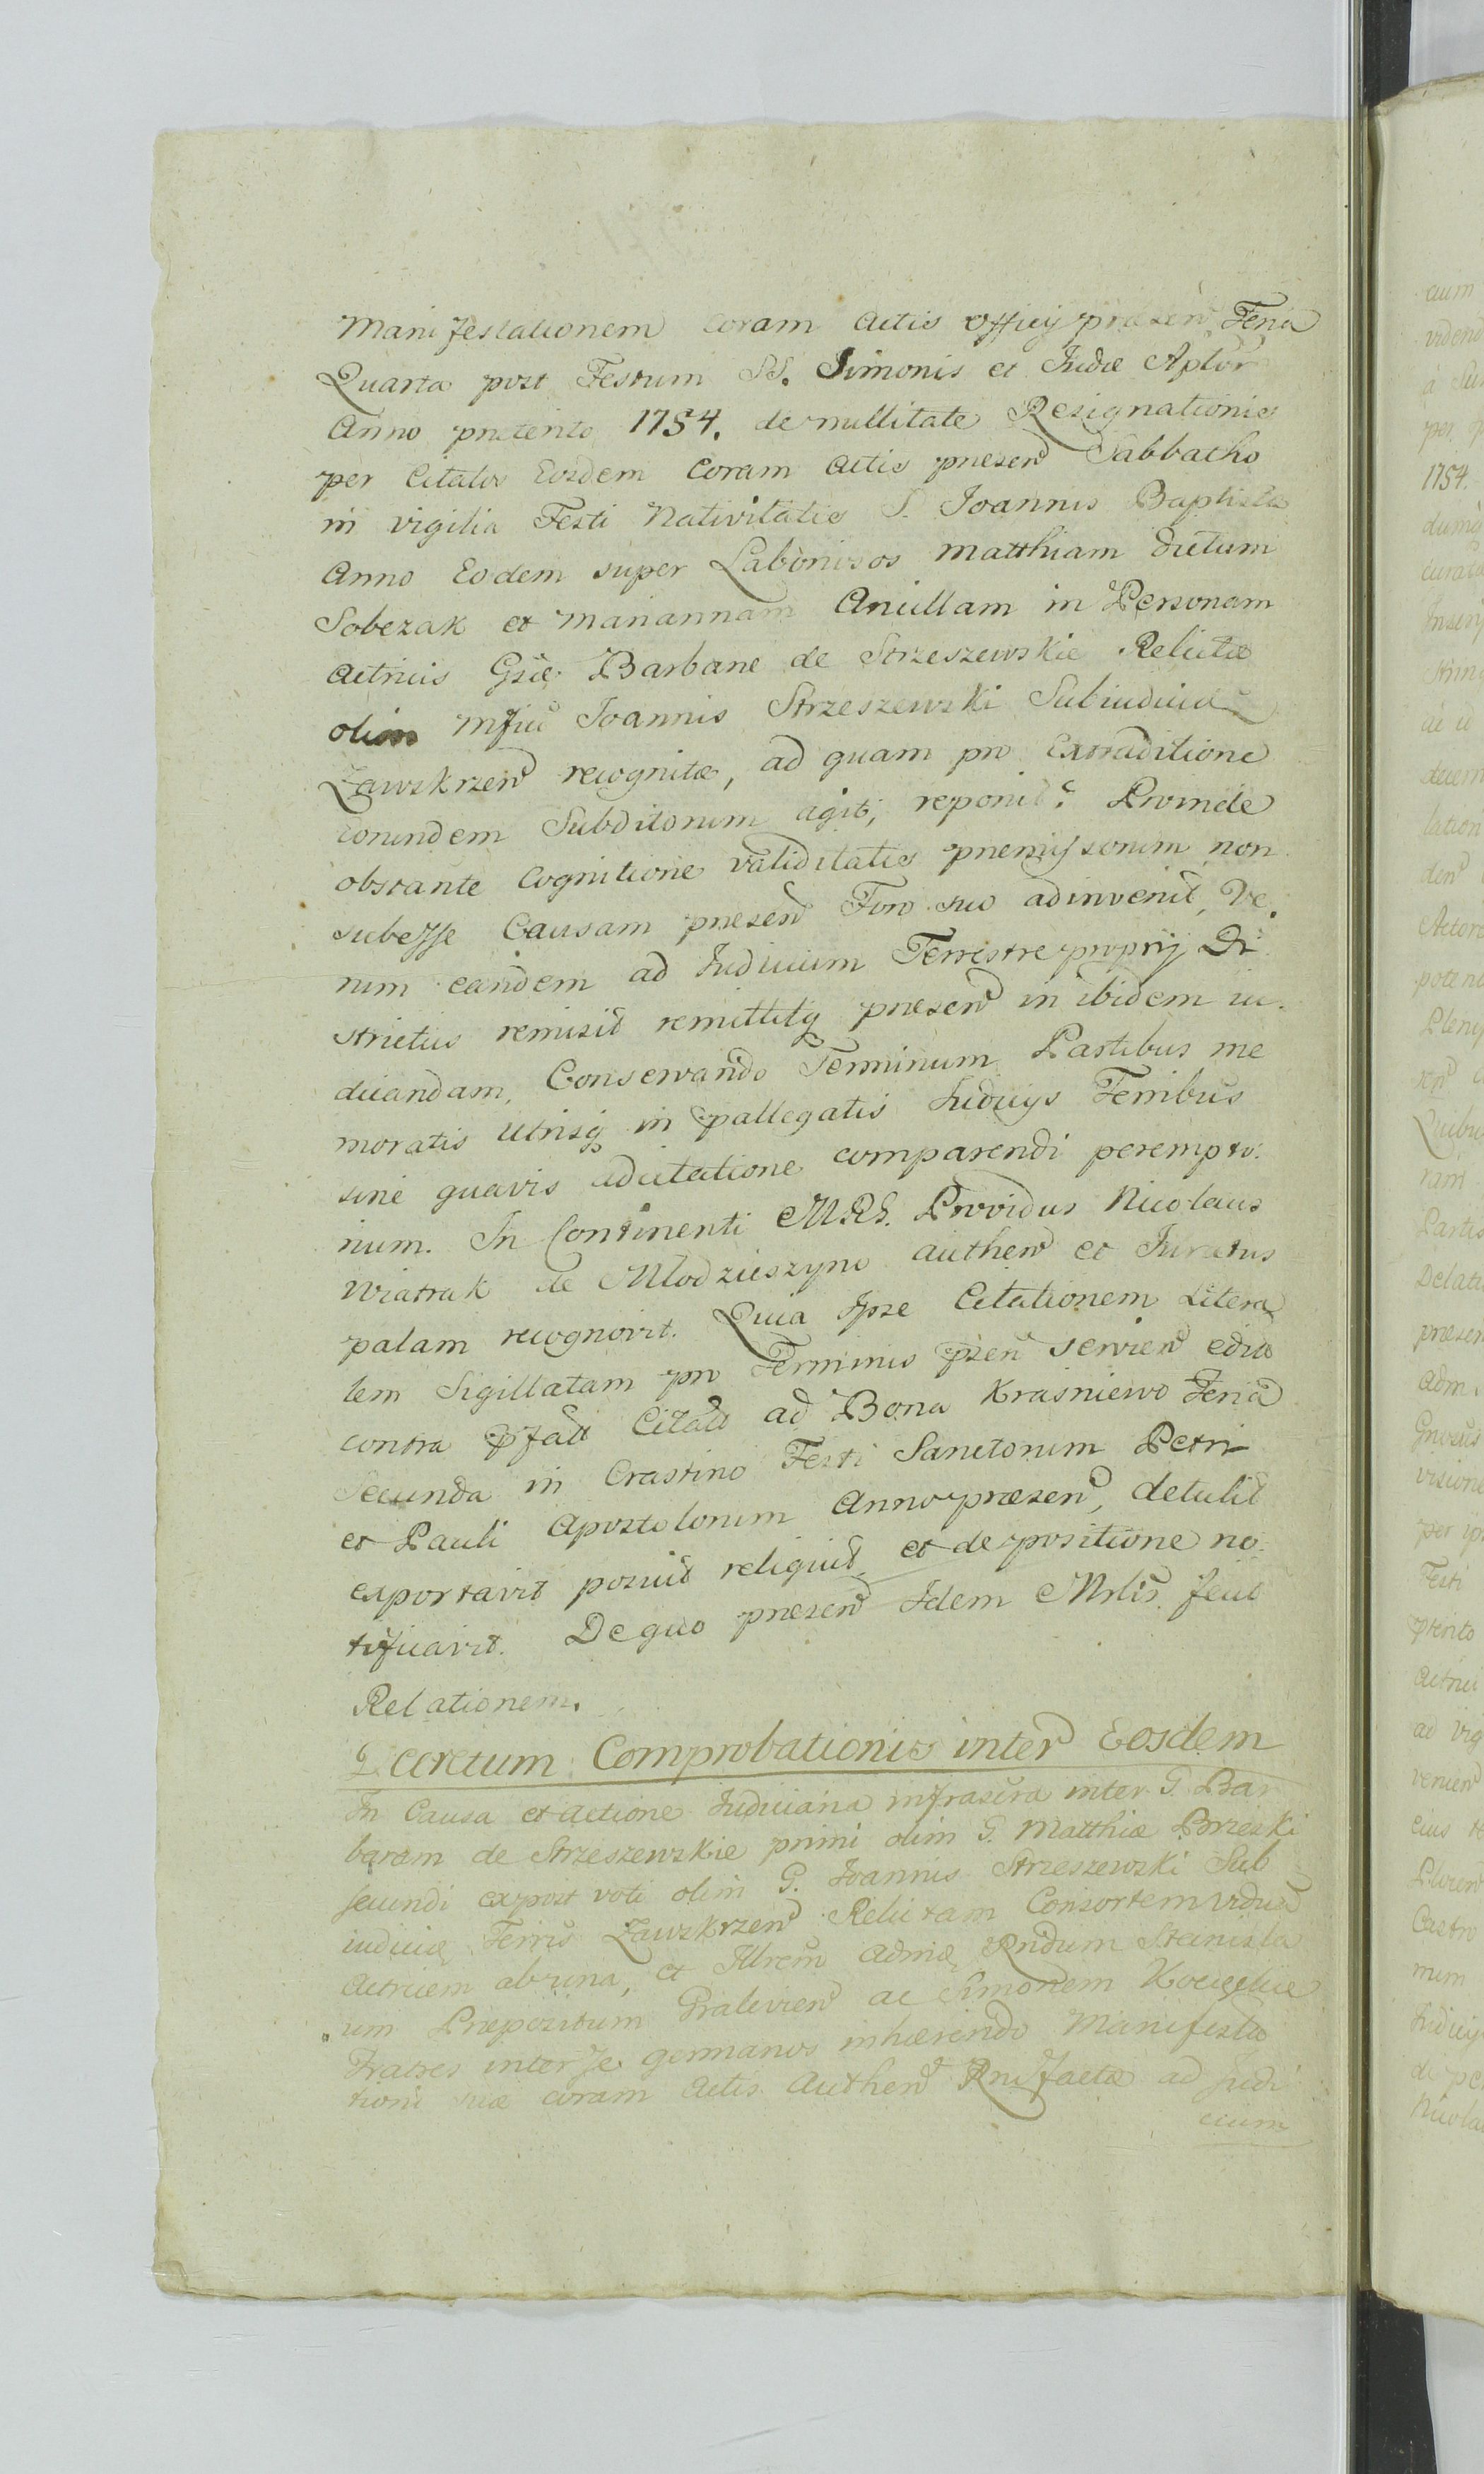 Manifestationem coram Actis Officij præsen Feria
Quarta post Festum SS. Simonis et Judæ Aplor
Anno præterito 1754. de nullitate Resignationis
per Citatos Eosdem Coram Actis præsen Sabbatho
in vigilia Festi Nativitatis S. Joannis Baptistæ
Anno Eodem super Laboriosos Matthiam dictum
Sobczak et Mariannam Ancillam in Personam
Actricis Gsæ Barbaræ de Strzeszewskie Relictæ
olim Mfici Joannis Strzeszewski Subiudicis
Zawskrzen recognitæ, ad quam pro Extraditione
eorundem Subditorum agit, reponit. Proinde
obstante Cognitione validitatis præmissorum non
subesse Causam præsen Foro suo adinvenit, Ve
rum eandem ad Judicium Terrestre proprij Di
strictus remisit remittitq præsen in ibidem iu
dicandam, Conservando Terminum Partibus me
moratis Utrisq in pallegatis Judicijs Terribus
sine quavis adcitatione comparendi perempto
rium. In Continenti MRS. Providus Nicolaus
Wiatrak de Młodzieszyno authen et Juratus
palam recognovit. Quia Ipse Citationem Litera
lem Sigillatam pro Terminis psen servien edita
contra pfatt Citatt ad Bona Krasniewo Feria
Secunda in Crastino Festi Sanctorum Petri
et Pauli Apostolorum Anno præsen, detulit
exportavit posuit reliquit et de positione no
tificavit. De quo præsen Idem Mrlis fecit
Relationem.
Decretum Comprobationis inter Eosdem
In Causa et Actione Judiciaria infrascra inter G. Bar
baram de Strzeszewskie primi olim G. Matthiæ Brzeski
secundi expost voti olim G. Joannis Strzeszewski Sub
iudicis Terris Zawskrzen Relictam Consortem viduam
Actricem ab una, et Illrem Admo Rndum Stanisla
um Præpositum Gralevien ac Simonem Kociełłie
Fratres inter se germanos inhærendo Manifesta
tioni suæ coram Actis Authen factæ ad Judi
cium
1754.
Partis
Castro